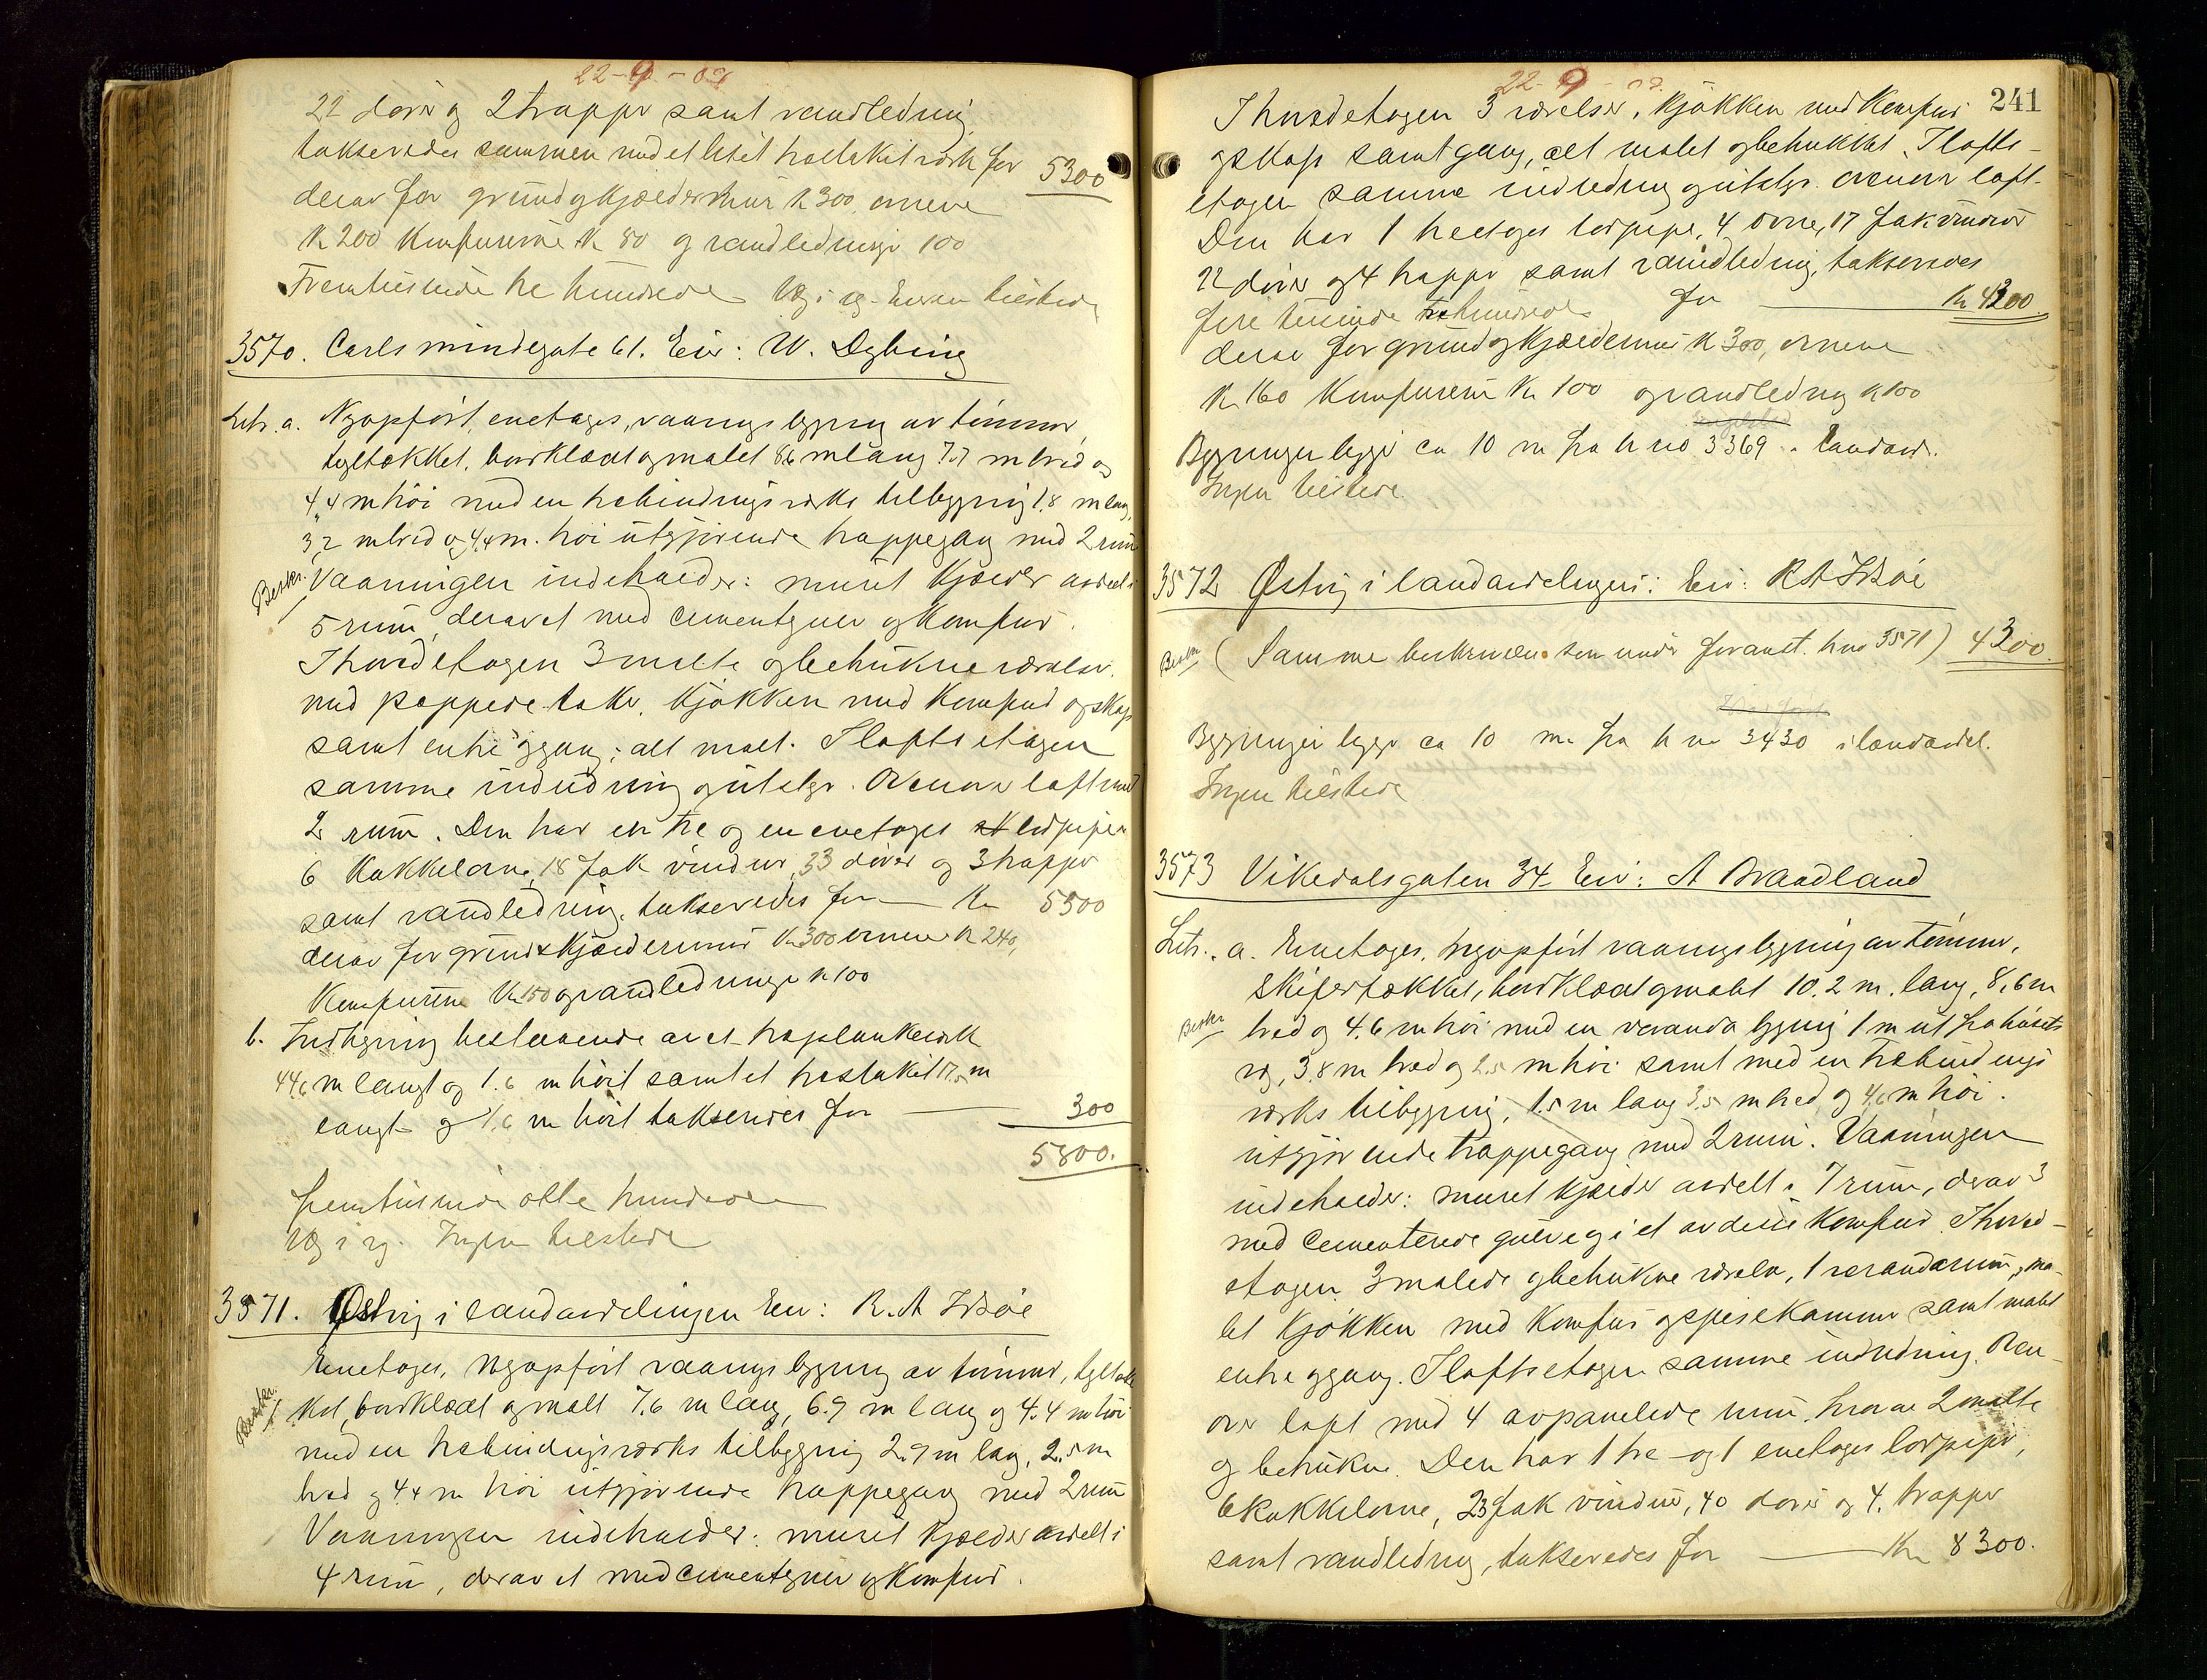 22-9-09
22 dører og 2 trapper samt vandledning
takseredes sammen med et litet træstakitværk for 5300
derav for grund og kjældermur K 300, ovnene
K 200 Komfurerne K 80 og vandledninger 100
Fremtiusinde tre hundrede Væg i væg. Eieren tilstede
3570. Carls mindegate 61. Eier: W. Dybing
Litr. a. Nyopført, enetages, vaaningsbygning av tømmer,
tegltækket, bordklædt og malet 8,6 m lang 7.7 m bred og
4,4 m høi med en træbindingsverks tilbygning 1,8 m lang,
3,2 m bred og 4,4 m. høi utgjørende trappegang med 2 rum
Beskr. Vaaningen indeholder: muret Kjælder avdelt i
5 rum, derav et med cementgulv og Komfur.
I hovedetagen 3 malte og betrukne værelser
med pappede taker, Kjøkken med Komfur og skap
samt entre og gang; alt malt. I loftsetagen
samme indredning og utstyr. Ovenover loft med
2 rum. Den har en tre og en enetages teglpiper
6 Kakkelovne, 18 fak vinduer, 33 dører og 3 trapper
samt vandledning, takseredes for — Kr 5500
derav for grund & Kjældermur Kr 300 ovnene K 240,
Komfurerne Kr 150 og vandledninge K 100
b. Indhegning bestaaende av et træplankeverk
44,6 m langt og 1.6 m høit samt et træstakit 17,5 m
langt og 1,6 m høit takseredes for — 300
5800.
femtusinde otte hundrede
Væg i væg. Ingen tilstede
3571. Østvig i landavdelingen Eier: R. A
Enetages, Nyopført vaaningsbygning av tømmer, tegltæk
Beskr. ket, bordklædt og malt 7.6 m lang, 6.9 m lang og 4.4 m høi
med en træbindingsværks tilbygning 2.9 m lang, 2.5 m
bred og 4.4 m høi utgjørende trappegang med 2 rum
Vaaningen indeholder: muret Kjælder avdelt i
4 rum, derav et med cementgulv og Komfur.
22-9-09.
241
I hovedetagen 3 værelser, Kjøkken med Komfur
og skap samt gang, alt malet og betrukket. I lofts-
etagen samme indredning og utstyr. Ovenover loft.
Den har 1 treetages teglpipe, 4 ovne, 17 fak vinduer
22 dører og 4 trapper samt vandledning, takseredes
fire tusinde tre hundrede for — Kr 4300
derav for grund og Kjældermur K 300, ovnene
Kr 160 Komfurerne Kr 100 og vandledning K 100
Bygningen ligger ca 10 m fra h no 3369 i landavd.
Ingen tilstede.
3572 Østvig i landavdelingen: Eier: R A
Beskr ( Samme beskrivelse som under foranst. h no 3571 ) 4300.
Bygningen ligger ca 10 m. fra h no 3430 i landavdel.
Ingen tilstede
3573 Vikedalsgaten 34. Eier: A Braadland
Litr. a. Enetages, Nyopført vaaningsbygning av tømmer,
Skifertækket, bordklædt og malet 10.2 m. lang, 8,6 m
Beskr bred og 4.6 m høi med en veranda bygning 1 m ut fra husets
væg, 3,8 m bred og 2.5 m høi samt med en træbindings
værks tilbygning, 1.5 m lang 3,5 m bred og 4,6 m høi.
utgjørende trappegang med 2 rum. Vaaningen
indeholder: muret Kjælder avdelt i 7 rum, derav 3
med cementerede gulve og i et av disse Komfur. I hoved-
etagen 3 malede og betrukne værelser, 1 verandarum, ma-
let Kjøkken med Komfur og spisekammer samt malet
entre og gang. I loftsetagen samme indredning. Oven-
over loft med 4 avpanelede rum, hvorav 2 malte
og betrukne. Den har 1 tre- og 1 enetages teglpiper,
6 Kakkelovne, 23 fak vinduer, 40 dører og 4. trapper
samt vandledning, takseredes for — Kr 8300.